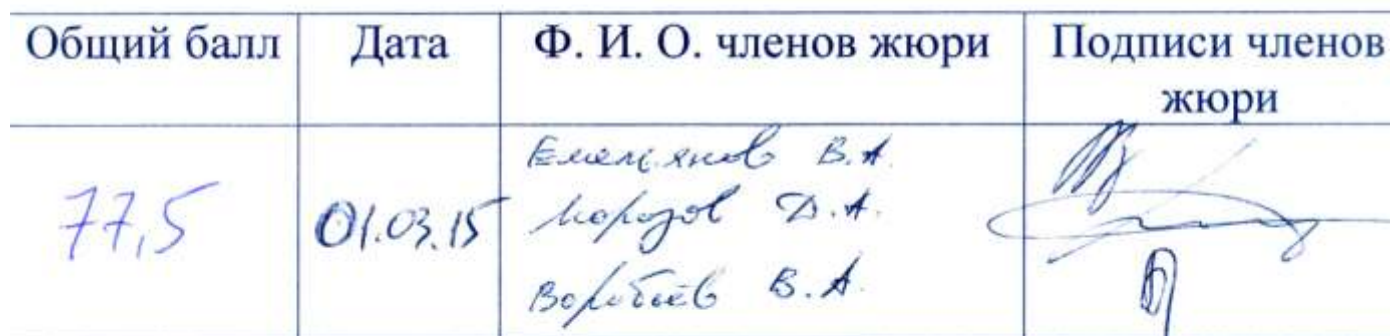 Общий балл
Дата
Ф. И. О. членов жюри
Подписи членов
жюри
77,5
01.03.15
Емельянов В.А.
Морозов Д.А.
Воробьёв В.А.